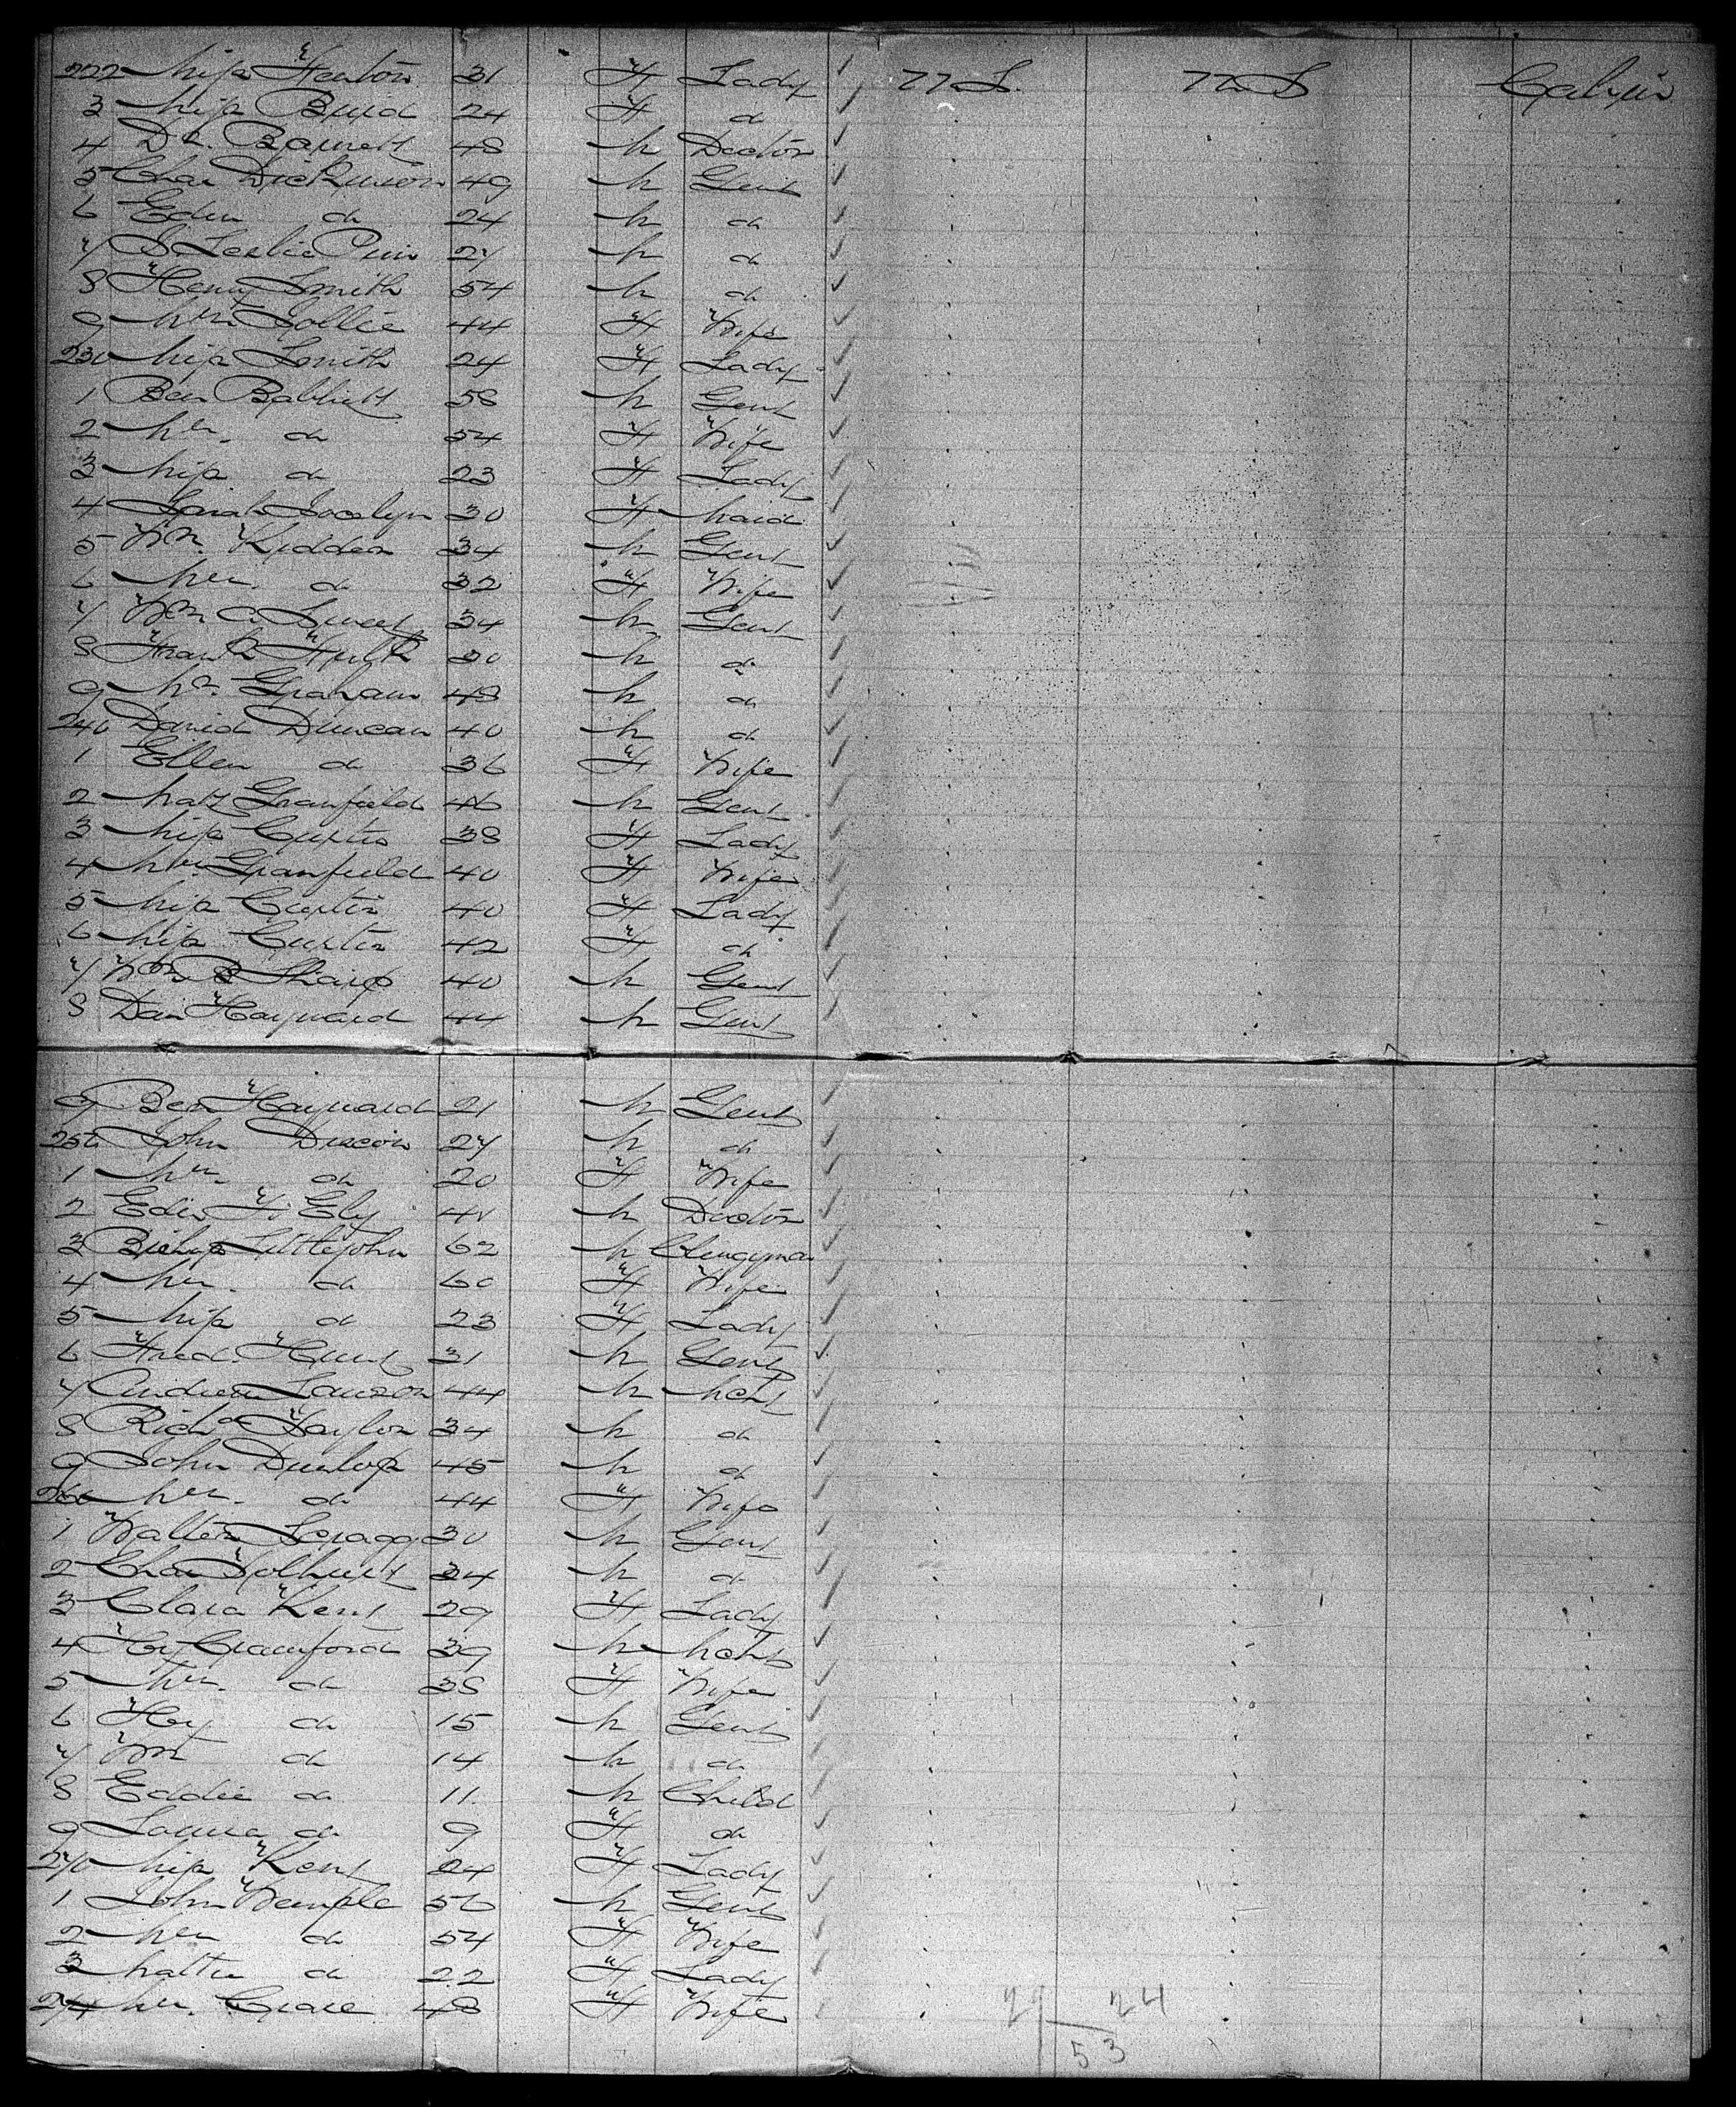 222 Miss Heaton 31 F Lady U.S. U.S. Cabin
3 Miss 24 F do
4 Dr. Barnett 48 M Doctor
5 Chas Dickinson 49 M Gent
6 Edw do 24 M do
7 S Leslie 27 M do
8 Henry Smith 54 M do
9 Mrs 44 F Wife
230 Miss Smith 24 F Lady
1 Ben Babbitt 58 M Gent
2 Mrs. do 54 F Wife
3 Miss do 23 F Lady
4 Sarah Jocelyn 30 F Maid
5 Wm. Kidder 34 M Gent
6 Mrs. do 32 F Wife
7 Wm C. Sweet 34 M Gent
8 Frank 30 M do
9 Mr. Graham 48 M do
240 David Duncan 40 M do
1 Ellen do 36 F Wife
2 Matt Granfield 46 M Gent
3 Miss Curtis 38 F Lady
4 Mrs. Granfield 40 F Wife
5 Miss Curtis 40 F Lady
6 Miss Curtis 42 F do
7 Wm B Sharp 40 M Gent
8 Dan Hayward 44 M Gent
9 Ben Hayward 21 M Gent
250 John 27 M do
1 Mrs. do 20 F Wife
2 Edw F. Ely 41 M Doctor
3 Bishop Littlejohn 62 M Clergyman
4 Mrs. do 60 F Wife
5 Miss do 23 F Lady
6 Fred. Hunt 31 M Gent
7 Andrew Lawson 44 M Mcht
8 Richd Taylor 34 M do
9 John Dunlop 45 M do
260 Mrs. do 44 F Wife
1 Walter Scragg 30 M Gent
2 Chas Tolhurst 24 M do
3 Clara Kent 29 F Lady
4 Hy Crawford 39 M Mcht
5 Mrs. do 38 F Wife
6 Hy do 15 M Gent
7 Wm do 14 M do
8 Eddie do 11 M Child
9 Louisa do 9 F do
270 Miss Kent 24 F Lady
1 John Wemple 56 M Gent
2 Mrs do 54 F Wife
3 Mattie do 22 F Lady
274 Mrs. Grace 48 F Wife
29 24
53